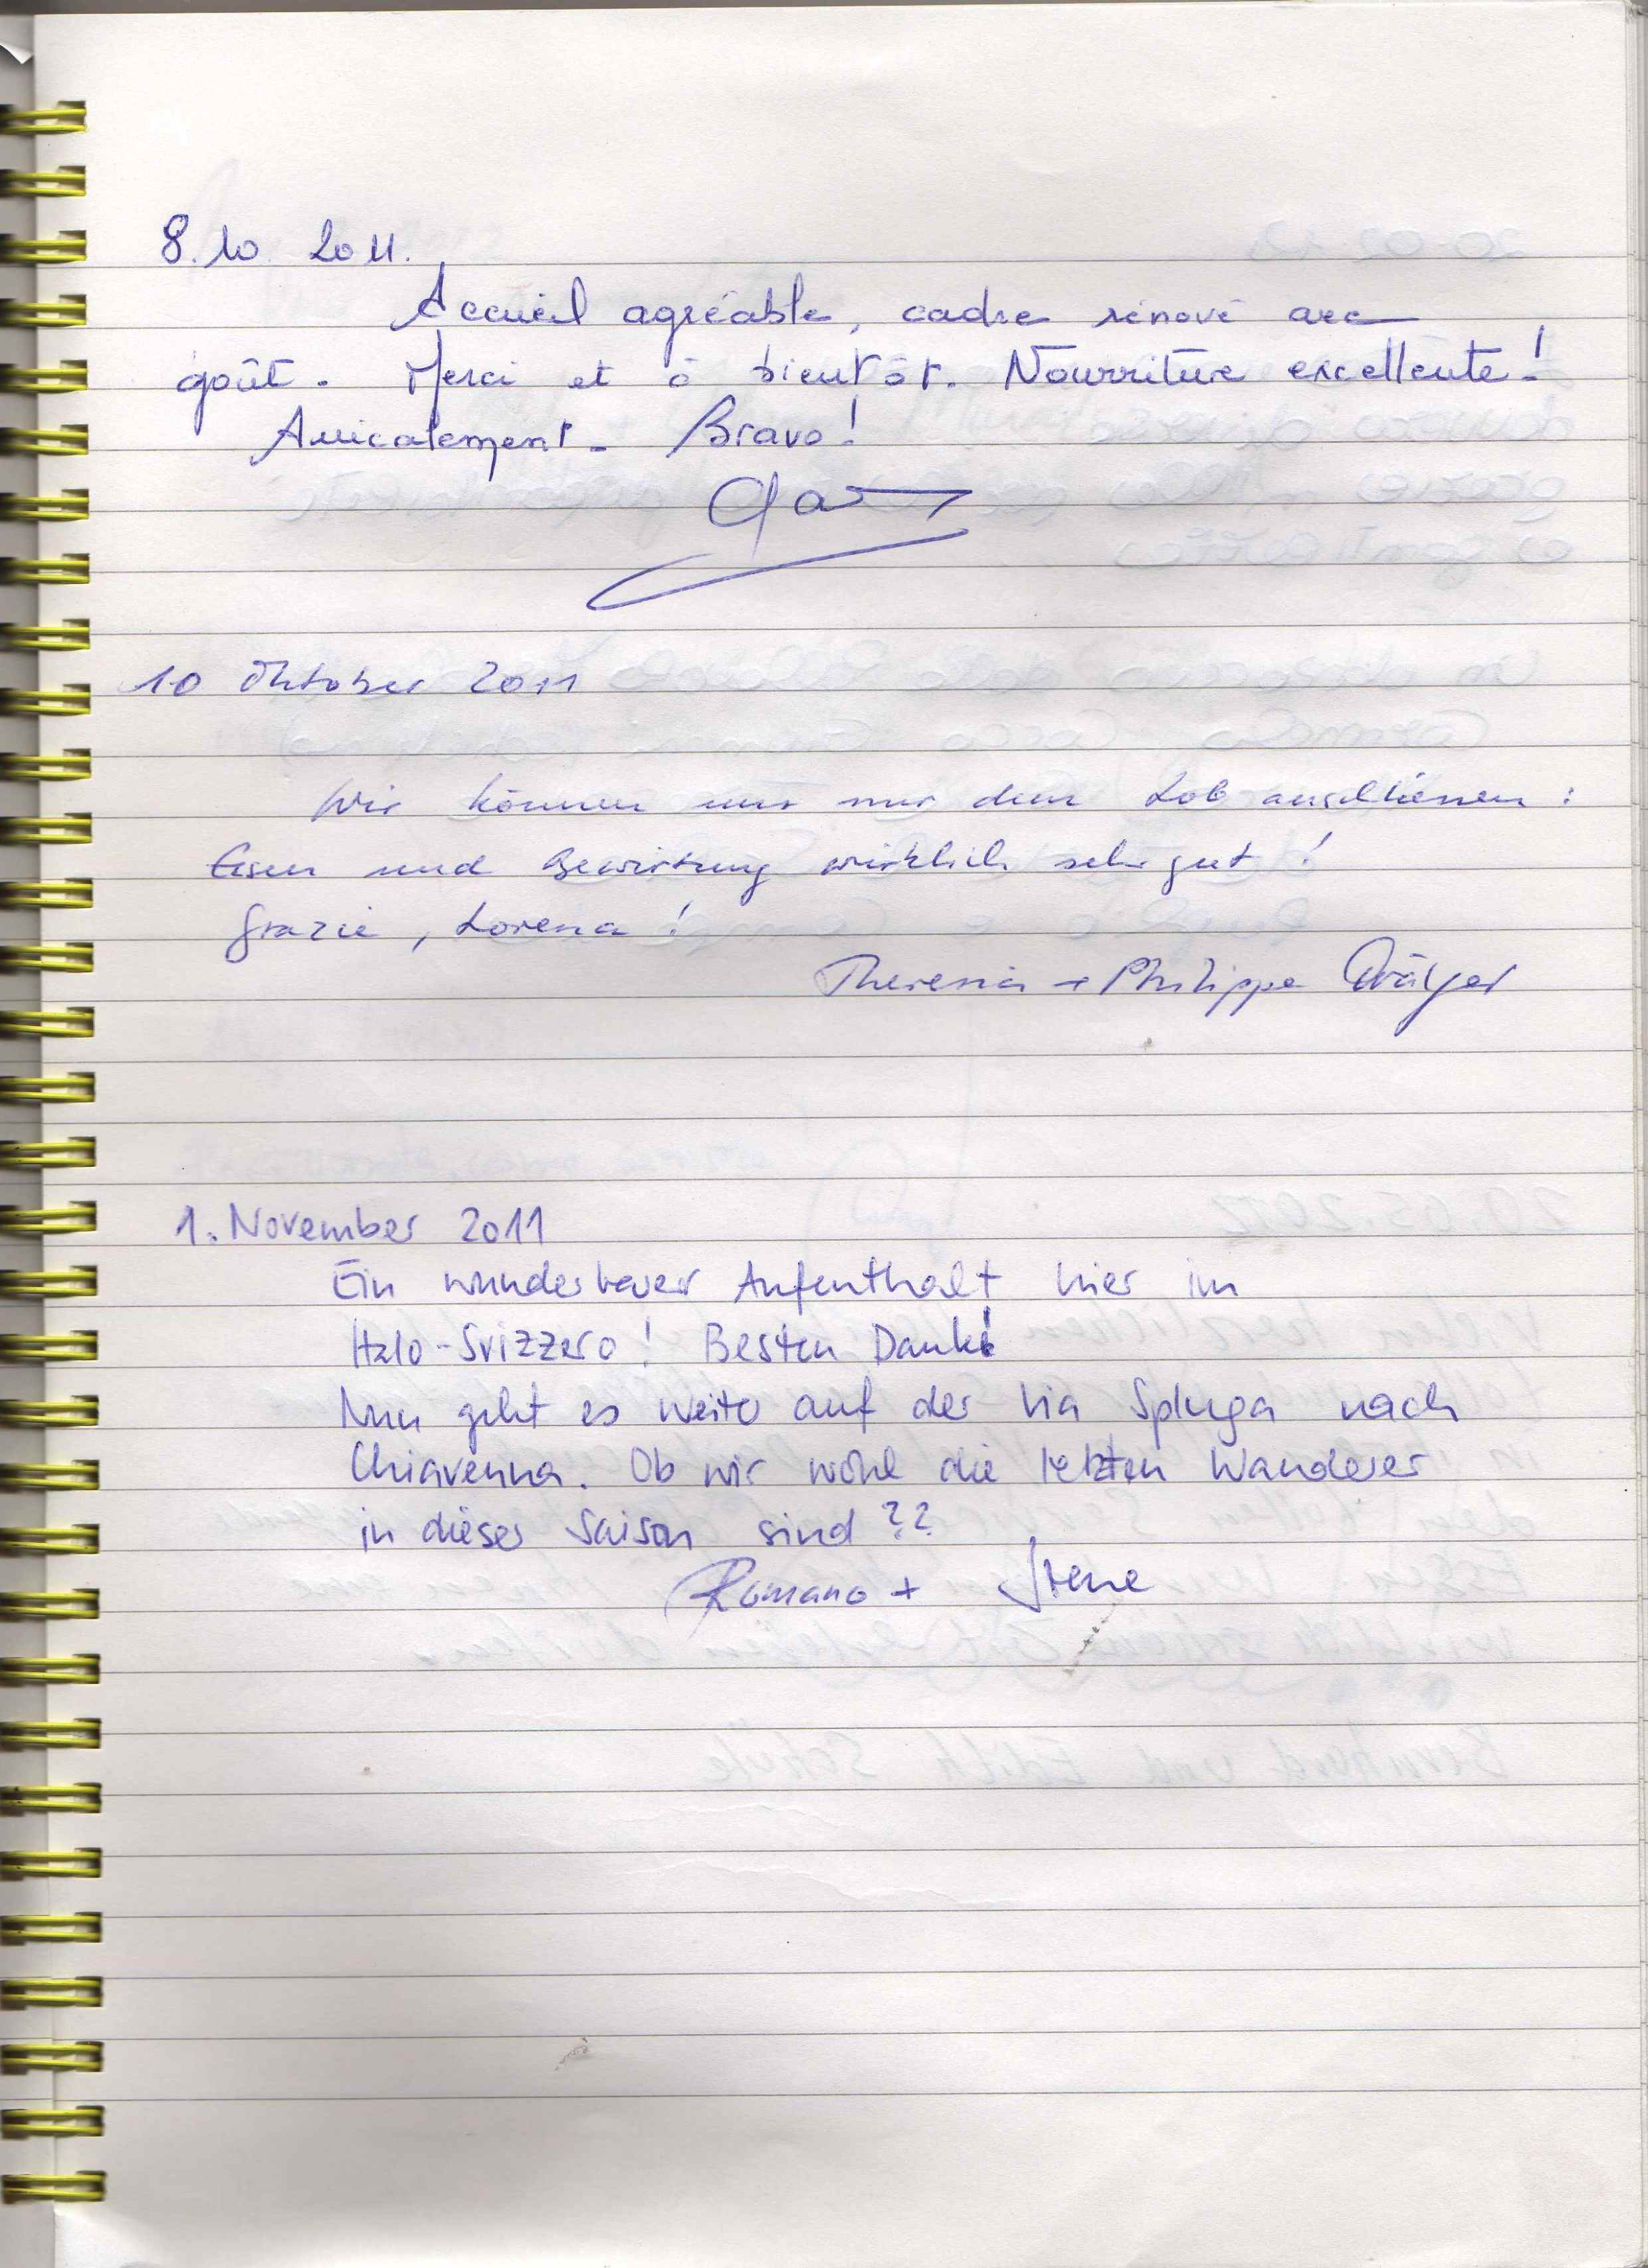 8.10. 2011.
Accueil agréable, cadre rénové avec
goût. Merci et à bientôt. Nourriture excellente!
Amicalement. Bravo!
10 Oktober 2011
Wir können uns nur dem Lob anschliessen:
Essen und Bewirtung wirklich sehr gut!
Grazie, Lorena!
Theresia + Philippe
1. November 2011
Ein wunderbarer Aufenthalt hier im
Italo-Svizzero! Besten Dank!
Nun geht es weiter auf der Via Spluga nach
Chiavenna. Ob wir wohl die letzten Wanderer
in dieser Saison sind??
Romano + Irene